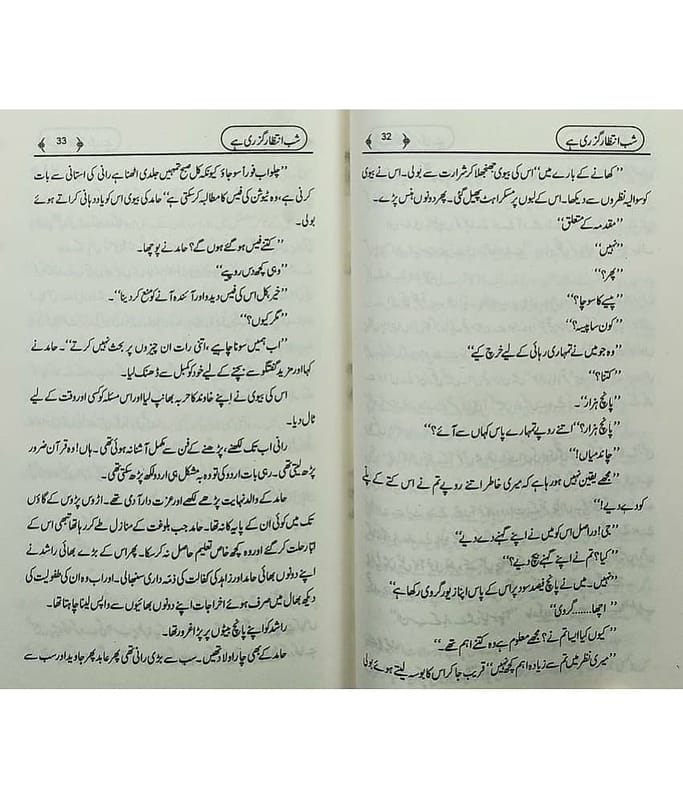 شب انتظار گزری ہے
32
’’کھانے کے بارے میں‘‘ اس کی بیوی جھنجھلا کر شرارت سے بولی۔ اس نے بیوی
کو سوالیہ نظروں سے دیکھا۔ اس کے لبوں پر مسکراہٹ پھیل گئی۔ پھر دونوں ہنس پڑے۔
’’مقدمہ کے متعلق‘‘
’’نہیں‘‘
’’پھر؟‘‘
’’پیسے کا سوچا؟‘‘
’’کون سا پیسہ؟‘‘
’’وہ جو میں نے تمہاری رہائی کے لیے خرچ کیے‘‘
’’کتنا؟‘‘
’’پانچ ہزار‘‘۔
’’پانچ ہزار؟‘‘ اتنے روپے تمہارے پاس کہاں سے آئے؟‘‘
’’چاند میاں!‘‘
’’مجھے یقین نہیں ہو رہا ہے کہ میری خاطر اتنے روپے تم نے اس کتے کے پلے
کو دے دیے!‘‘
’’جی! دراصل اس کو میں نے اپنے گہنے دے دیے‘‘
’’کیا؟ تم نے اپنے گہنے بیچ دیے؟‘‘
’’نہیں۔ میں نے پانچ فیصد سود پر اس کے پاس اپنا زیور گروی رکھا ہے‘‘
’’اچھا.......گروی‘‘
’’کیوں کیا ایسا تم نے؟ مجھے معلوم ہے وہ کتنے اہم تھے‘‘۔
’’میری نظر میں تم سے زیادہ اہم کچھ نہیں‘‘ قریب جا کر اس کا بوسہ لیتے ہوئے بولی
شب انتظار گزری ہے
33
’’چلو اب فوراً سو جاؤ کیونکہ کل صبح تمہیں جلدی اٹھنا ہے رانی کی استانی سے بات
کرنی ہے، وہ ٹیوشن کی فیس کا مطالبہ کر سکتی ہے‘‘ حامد کی بیوی اس کو یاد دہانی کراتے ہوئے
بولی۔
’’کتنے فیس ہو گئے ہوں گے؟ حامد نے پوچھا۔
’’وہی کچھ دس روپیے‘‘
’’خیر کل اس کی فیس دیدو اور آئندہ آنے کو منع کر دینا‘‘۔
’’مگر کیوں؟‘‘
’’اب ہمیں سونا چاہیے، اتنی رات ان چیزوں پر بحث نہیں کرتے‘‘۔ حامد نے
کہا اور مزید گفتگو سے بچنے کے لیے خود کو کمبل سے ڈھنک لیا۔
اس کی بیوی نے اپنے خاوند کا حربہ بھانپ لیا اور اس مسئلہ کو کسی اور وقت کے لیے
ٹال دیا۔
رانی اب تک لکھنے، پڑھنے کے فن سے مکمل آشنا نہ ہوئی تھی۔ ہاں! وہ قرآن ضرور
پڑھ لیتی تھی۔ رہی بات اردو کی تو وہ بہ مشکل ہی اردو لکھ پڑھ سکتی تھی۔
حامد کے والد نہایت پڑھے لکھے اور عزت دار آدمی تھے۔ اڑوس پڑوس کے گاؤں
تک میں کوئی ان کے پایہ کا نہ تھا۔ حامد جب بلوغت کے منازل طے کر رہا تھا تبھی اس کے
ابّا رحلت کر گئے اور وہ کچھ خاص تعلیم حاصل نہ کر سکا۔ پھر اس کے بڑے بھائی راشد نے
اپنے دونوں بھائی حامد اور زاہد کی کفالت کی ذمہ داری سنبھالی۔ اور اب وہ ان کی طفولیت کی
دیکھ بھال میں صرف ہوئے اخراجات اپنے دونوں بھائیوں سے واپس لینا چاہتا تھا۔
راشد کو اپنے پانچ بیٹوں پر بڑا غرور تھا۔
حامد کے بھی چار اولاد تھیں۔ سب سے بڑی رانی تھی پھر عابد پھر جاوید اور سب سے